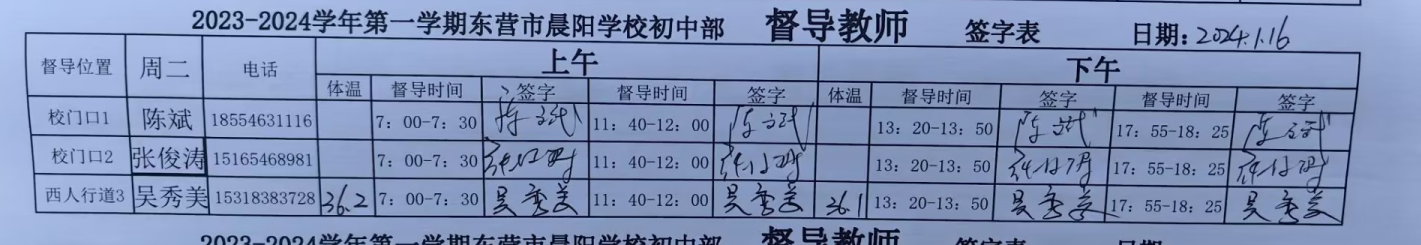 2023-2024学年第一学期东营市晨阳学校初中部 督导教师 签字表 日期:2024.1.16
督导位置 周二 电话 上午 下午
体温 督导时间 签字 督导时间 签字 体温 督导时间 签字 督导时间 签字
校门口1 陈斌 18554631116 7: 00-7: 30 陈斌 11: 40-12: 00 陈斌 13: 20-13: 50 陈斌 17: 55-18: 25 陈斌
校门口2 张俊涛 15165468981 7: 00-7: 30 11: 40-12: 00 13: 20-13: 50 17: 55-18: 25
西人行道3 吴秀美 15318383728 36.2 7: 00-7: 30 吴秀美 11: 40-12: 00 吴秀美 36.1 13: 20-13: 50 吴秀美 17: 55-18: 25 吴秀美
2023-2024学年第一学期东营市晨阳学校初中部 督导教师 签字表 日期